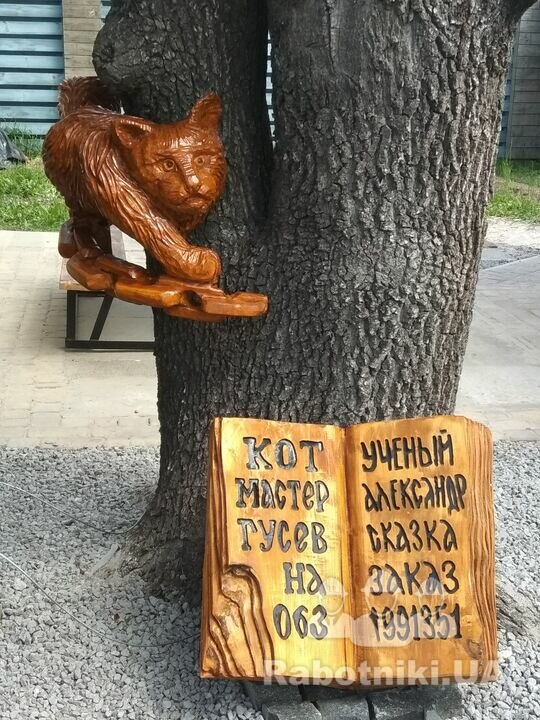 КОТ УЧЕНЫЙ
МАСТЕР АЛЕКСАНДР
ГУСЕВ СКАЗКА
НА ЗАКАЗ
063 1991351
Rabotniki.UA